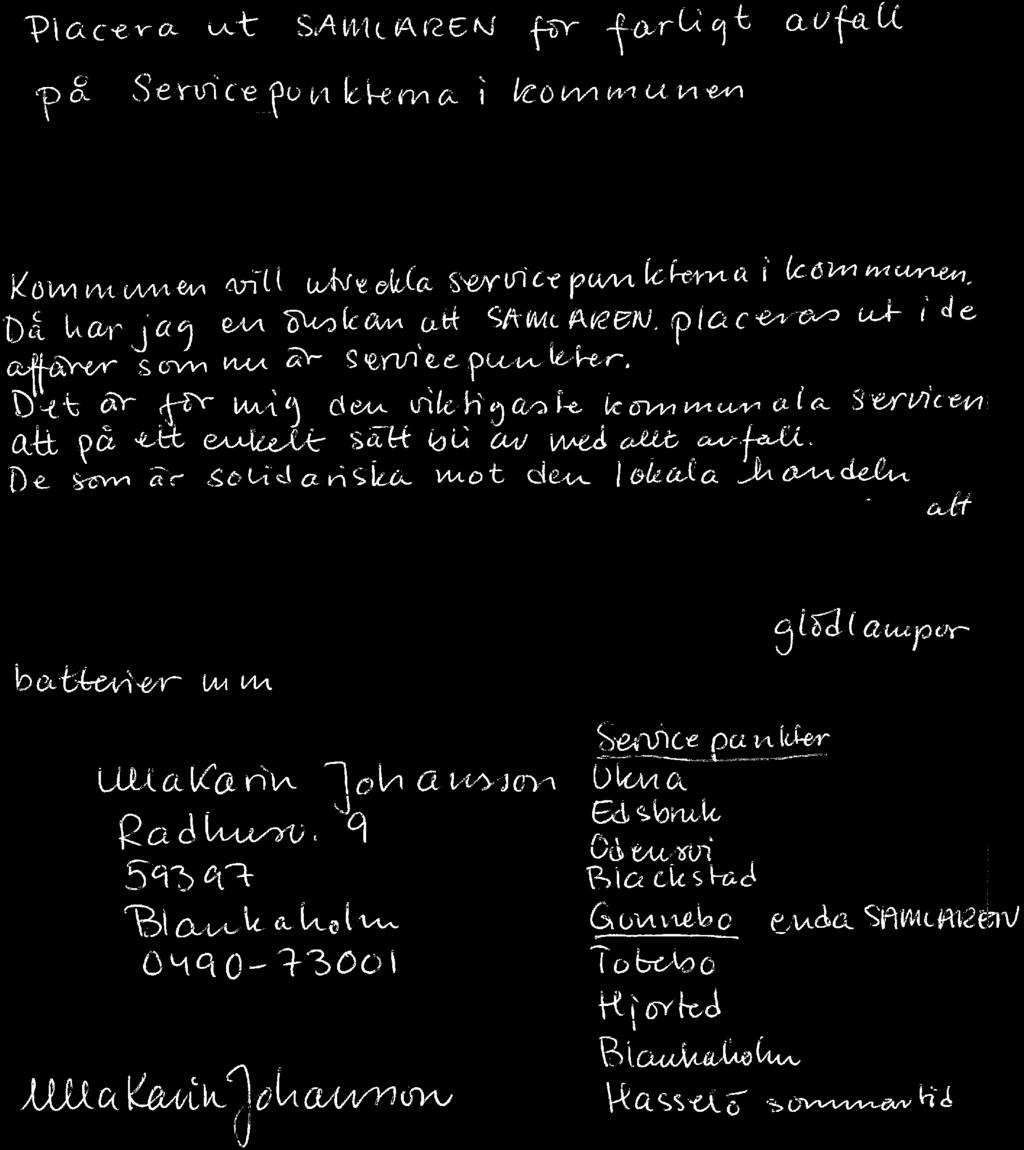 Placera ut SAMLAREN för farligt avfall
på Servicepunkterna i kommunen
Kommunen vill utveckla servicepunkterna i kommunen.
Då har jag en önskan att SAMLAREN. placeras ut i de
affärer som nu är servicepunkter.
Det är för mig den viktigaste kommunala servicen
att på ett enkelt sätt bli av med allt avfall.
De som är solidariska mot den lokala handeln
att
glödlampor
batterier mm
UllaKarin Johansson
Radhusv. 9
59397
Blankaholm
0490-73001
UllaKarin Johansson
Servicepunkter
Ukna
Edsbruk
Odensvi
Blackstad
Gunnebo enda SAMLAREN
Totebo
Hjorted
Blankaholm
Hasselö sommartid